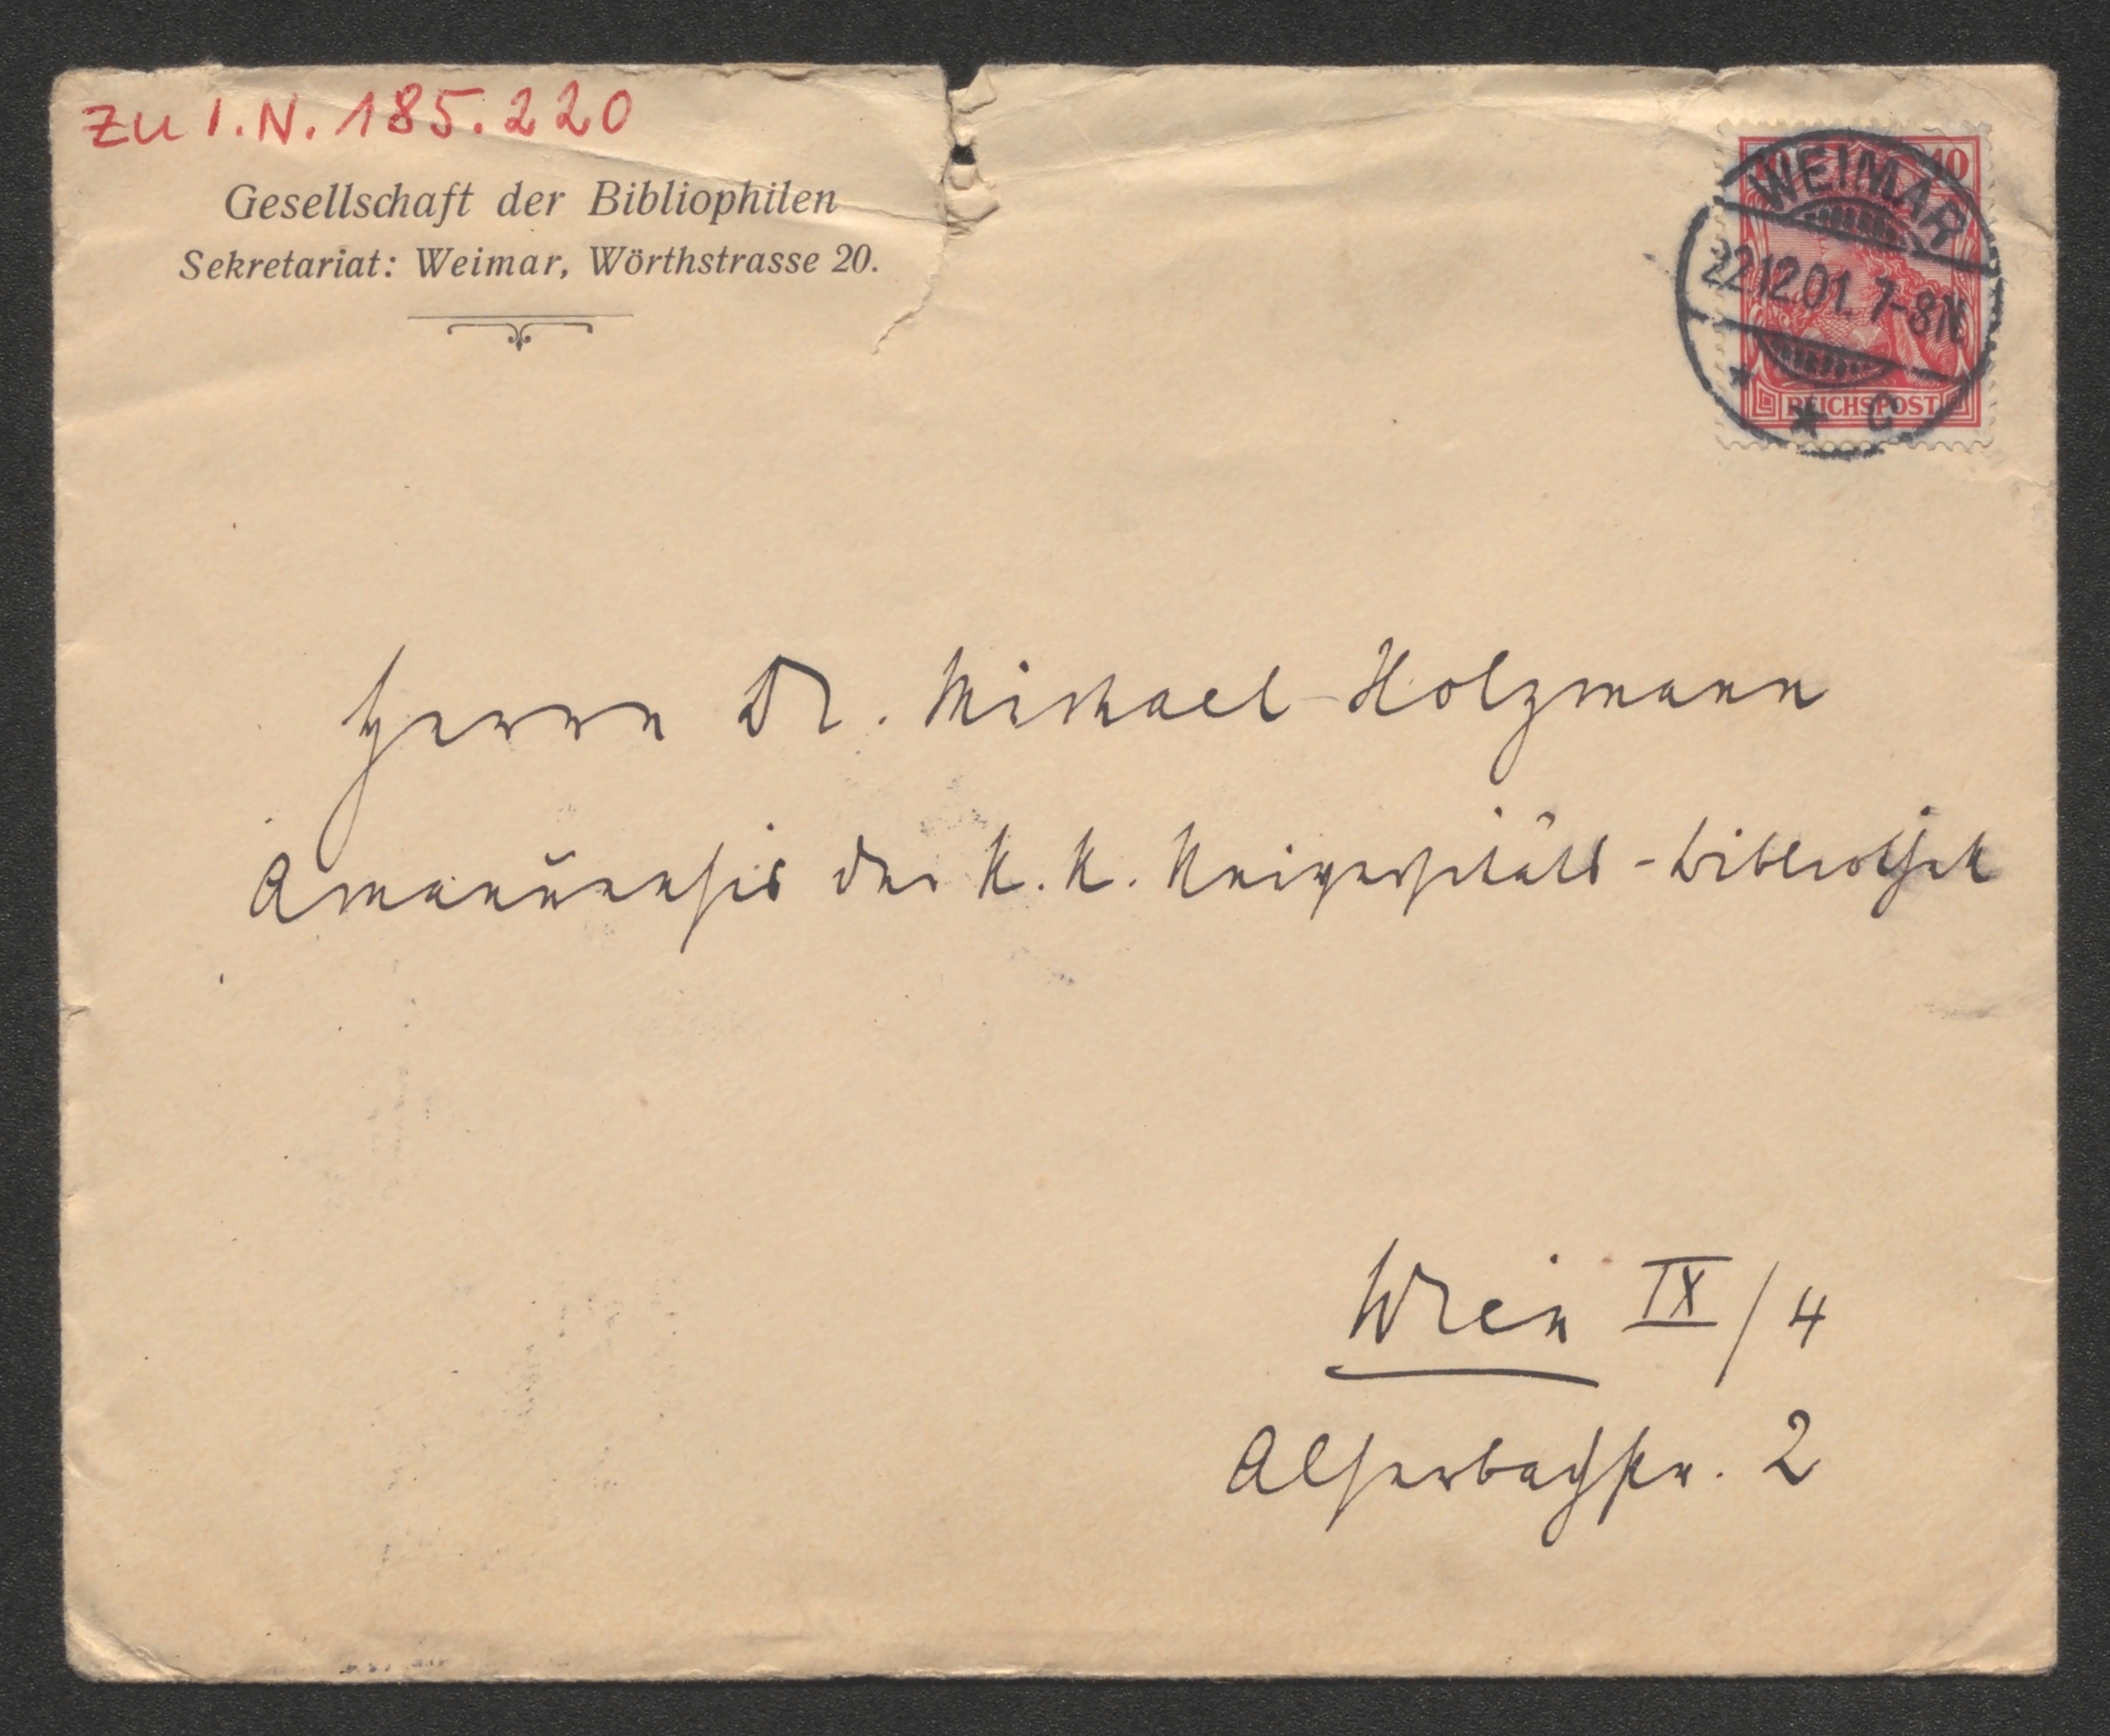 zu I.N. 185.220
Gesellschaft der Bibliophilen
Sekretariat: Weimar, Wörthstrasse 20.
10
WEIMAR
22.12.01. 7-8N
* * C
REICHSPOST
Herrn Dr. Michael Holzmann
Amanuensis der K. K. Universitäts-Bibliothek
Wien IX/4
Alserbachstr. 2